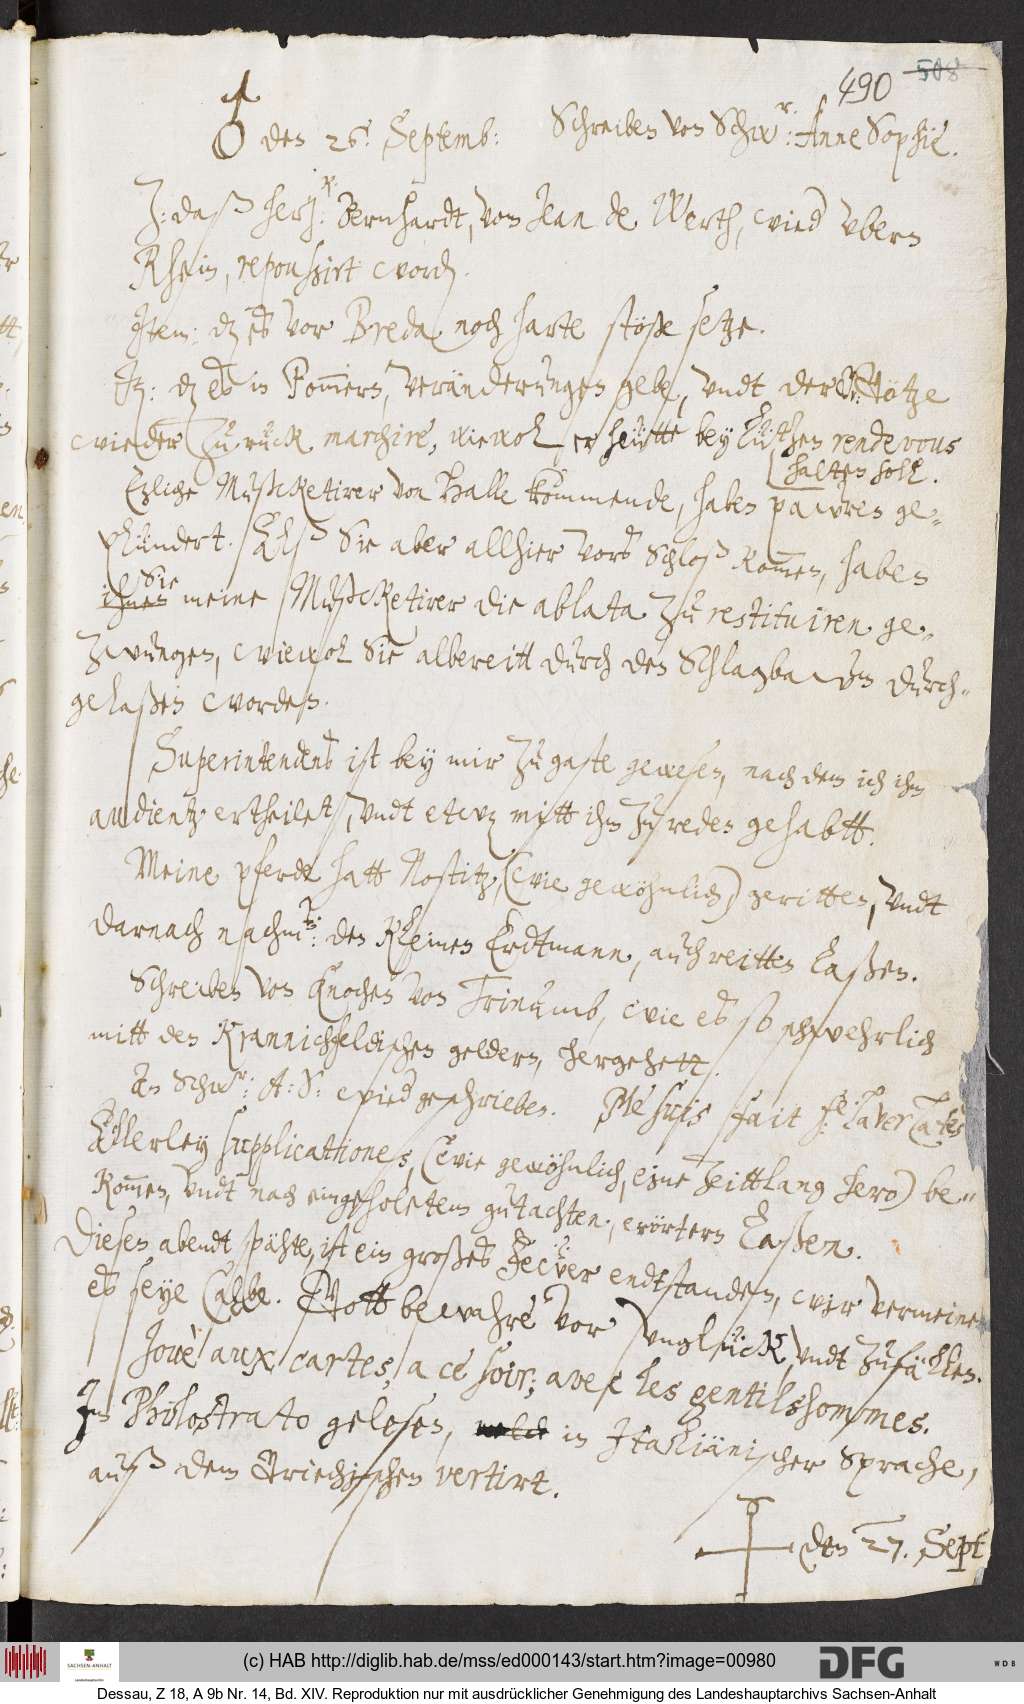 490 508
♂ den 26. Septemb: Schreiben von Schwr: Anne Sophie.
J: daß Hertz: Bernhardt, von Jean de Werth, wied ubern
Rhein, repoussirt word.
Item: dz es vor Breda noch harte stöße setze.
It: dz es in Pommern, veränderungen gebe, undt der Götze
wieder zurück marchire, wiewol er heütte bey Lüthen rendevous
halten soll.
Etzliche Mußketirer von Halle kommende, haben pawren ge-
plündert. Alß Sie aber allhier vors Schloß kommen, haben
ihnen Sie meine Mußketirer die ablata zu restituiren ge-
zwungen, wiewol Sie albereitt durch den Schlagbaum durch-
gelaßen worden.
Superintendens ist bey mir zu gaste gewesen, nach dem ich ihm
audientz ertheilet, undt etwz mitt ihm zu reden gehabtt.
Meine pferde hatt Nostitz, (wie gewöhnlich) geritten, undt
darnach nachmts: den kleinen Erdtmann, auch reitten laßen.
Schreiben von Knochen von Trinumb, wie es so schwehrlich
mitt den Krannichfeldischen geldern, hergehett.
An Schwr: A: S: wied geschrieben. Me suis fait
Allerley supplicationes, (wie gewöhnlich, eine zeittlang hero) be-
kommen, undt nach eingeholetem gutachten, erörtern laßen.
Diesen abendt spähte, ist ein großes Fewer endtstanden, wir vermeinen
es seye Calbe. Gott bewahre vor unglück, undt zufällen.
Joüè aux cartes, a ce soir; avec les gentilshommes.
Jn Philostrato gelesen, in Jtaliänischer sprache,
auß dem Griechischen vertirt.
den 27. Sept
(c) HAB http://diglib.hab.de/mss/ed000143/start.htm?image=00980
SACHSEN-ANHALT
DFG
WDB
Dessau, Z 18, A 9b Nr. 14, Bd. XIV. Reproduktion nur mit ausdrücklicher Genehmigung des Landeshauptarchivs Sachsen-Anhalt